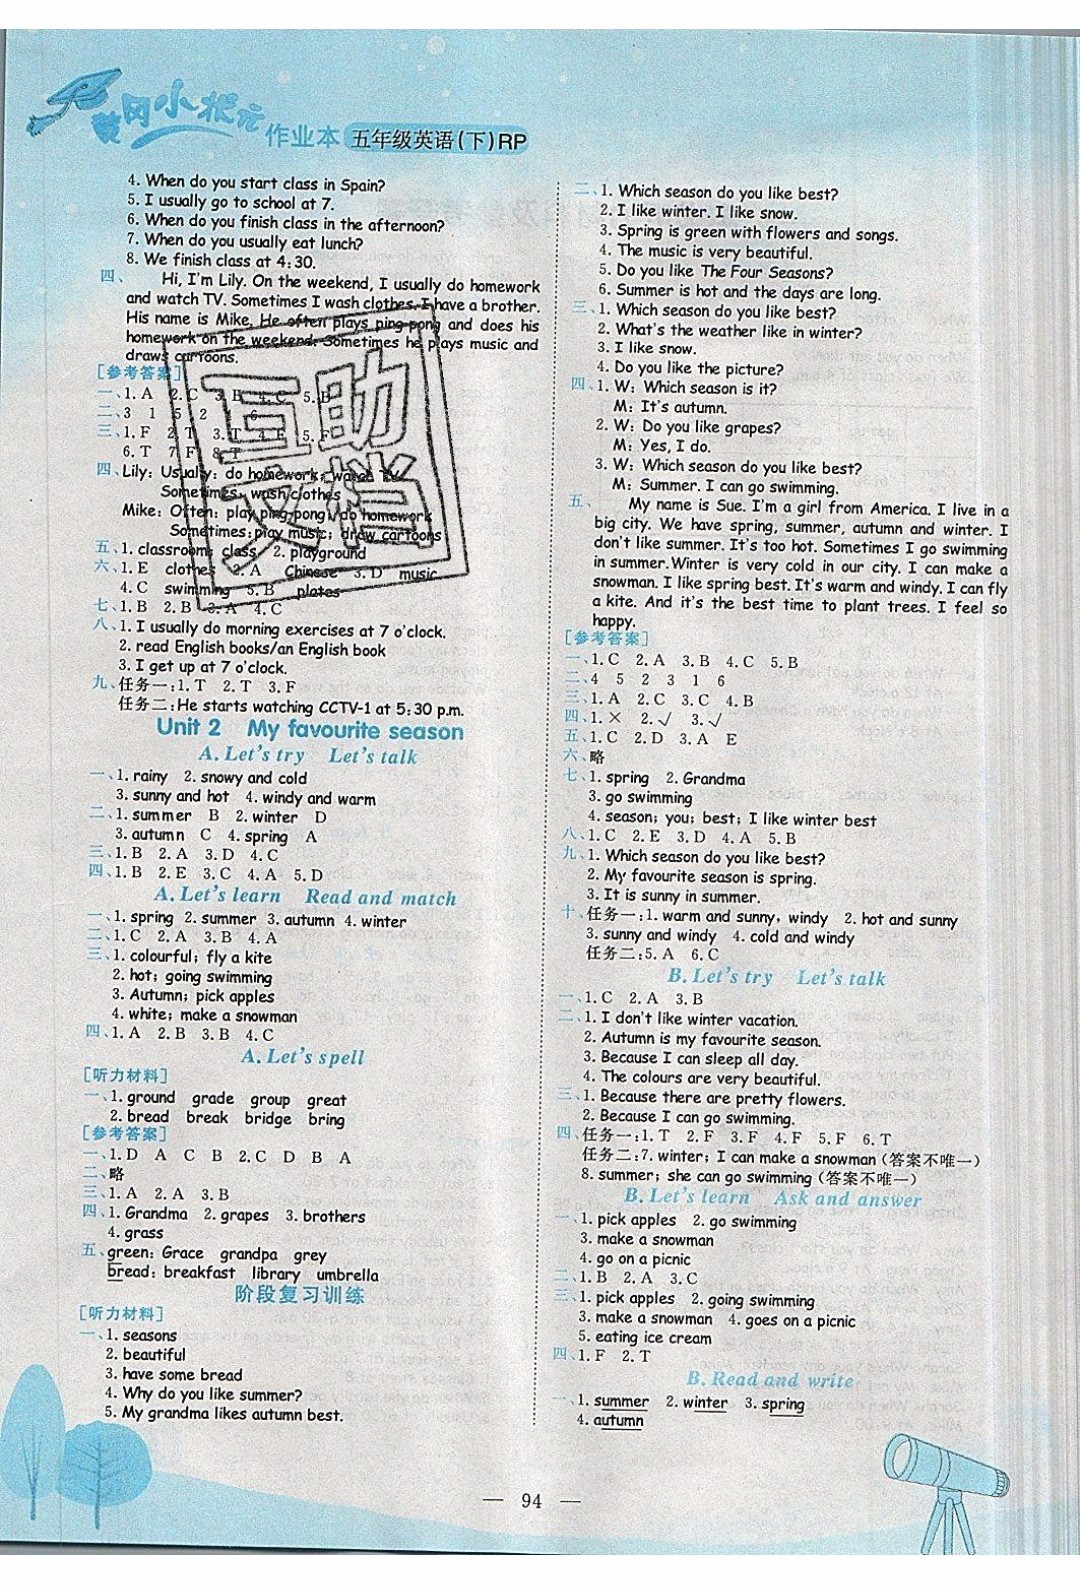 黄冈小状元
作业本 五年级英语(下)RP
4. When do you start class in Spain?
5. I usually go to school at 7.
6. When do you finish class in the afternoon?
7. When do you usually eat lunch?
8. We finish class at 4:30.
四、 Hi, I'm Lily. On the weekend, I usually do homework
and watch TV. Sometimes I wash clothes. I have a brother.
His name is Mike. He often plays ping-pong and does his
homework on the weekend. Sometimes he plays music and
draws cartoons.
[参考答案]
一、1. A 2. C 3. B 4. C 5. B
二、3 1 5 2 4 6
三、1. F 2. T 3. T 4. F 5. F
6. T 7. F 8. T
四、Lily: Usually: do homework; watch TV
Sometimes: wash clothes
Mike: Often: play ping-pong; do homework
Sometimes: play music; draw cartoons
五、1. classroom; class 2. playground
六、1. E clothes 2. A Chinese 3. D music
4. C swimming 5. B plates
七、1. B 2. B 3. A 4. C
八、1. I usually do morning exercises at 7 o'clock.
2. read English books/an English book
3. I get up at 7 o'clock.
九、任务一:1. T 2. T 3. F
任务二:He starts watching CCTV-1 at 5:30 p.m.
Unit 2 My favourite season
A. Let's try Let's talk
一、1. rainy 2. snowy and cold
3. sunny and hot 4. windy and warm
二、1. summer B 2. winter D
3. autumn C 4. spring A
三、1. B 2. A 3. D 4. C
四、1. B 2. E 3. C 4. A 5. D
A. Let's learn Read and match
一、1. spring 2. summer 3. autumn 4. winter
二、1. C 2. A 3. B 4. A
三、1. colourful; fly a kite
2. hot; going swimming
3. Autumn; pick apples
4. white; make a snowman
四、1. A 2. B 3. B 4. C
A. Let's spell
[听力材料]
一、1. ground grade group great
2. bread break bridge bring
[参考答案]
一、1. D A C B 2. C D B A
二、略
三、1. A 2. A 3. B
四、1. Grandma 2. grapes 3. brothers
4. grass
五、green: Grace grandpa grey
bread: breakfast library umbrella
阶段复习训练
[听力材料]
一、1. seasons
2. beautiful
3. have some bread
4. Why do you like summer?
5. My grandma likes autumn best.
二、1. Which season do you like best?
2. I like winter. I like snow.
3. Spring is green with flowers and songs.
4. The music is very beautiful.
5. Do you like The Four Seasons?
6. Summer is hot and the days are long.
三、1. Which season do you like best?
2. What's the weather like in winter?
3. I like snow.
4. Do you like the picture?
四、1. W: Which season is it?
M: It's autumn.
2. W: Do you like grapes?
M: Yes, I do.
3. W: Which season do you like best?
M: Summer. I can go swimming.
五、 My name is Sue. I'm a girl from America. I live in a
big city. We have spring, summer, autumn and winter. I
don't like summer. It's too hot. Sometimes I go swimming
in summer. Winter is very cold in our city. I can make a
snowman. I like spring best. It's warm and windy. I can fly
a kite. And it's the best time to plant trees. I feel so
happy.
[参考答案]
一、1. C 2. A 3. B 4. C 5. B
二、4 5 2 3 1 6
三、1. A 2. C 3. C 4. B
四、1. × 2. √ 3. √
五、1. C 2. D 3. A E
六、略
七、1. spring 2. Grandma
3. go swimming
4. season; you; best; I like winter best
八、1. C 2. E 3. D 4. A 5. B
九、1. Which season do you like best?
2. My favourite season is spring.
3. It is sunny in summer.
十、任务一:1. warm and sunny, windy 2. hot and sunny
3. sunny and windy 4. cold and windy
任务二:5. A 6. C
B. Let's try Let's talk
一、1. C 2. A 3. B
二、1. I don't like winter vacation.
2. Autumn is my favourite season.
3. Because I can sleep all day.
4. The colours are very beautiful.
三、1. Because there are pretty flowers.
2. Because I can go swimming.
四、任务一:1. T 2. F 3. F 4. F 5. F 6. T
任务二:7. winter; I can make a snowman(答案不唯一)
8. summer; she can go swimming(答案不唯一)
B. Let's learn Ask and answer
一、1. pick apples 2. go swimming
3. make a snowman
4. go on a picnic
二、1. B 2. A 3. C
三、1. pick apples 2. going swimming
3. make a snowman 4. goes on a picnic
5. eating ice cream
四、1. F 2. T
B. Read and write
一、1. summer 2. winter 3. spring
4. autumn
互助文档
— 94 —